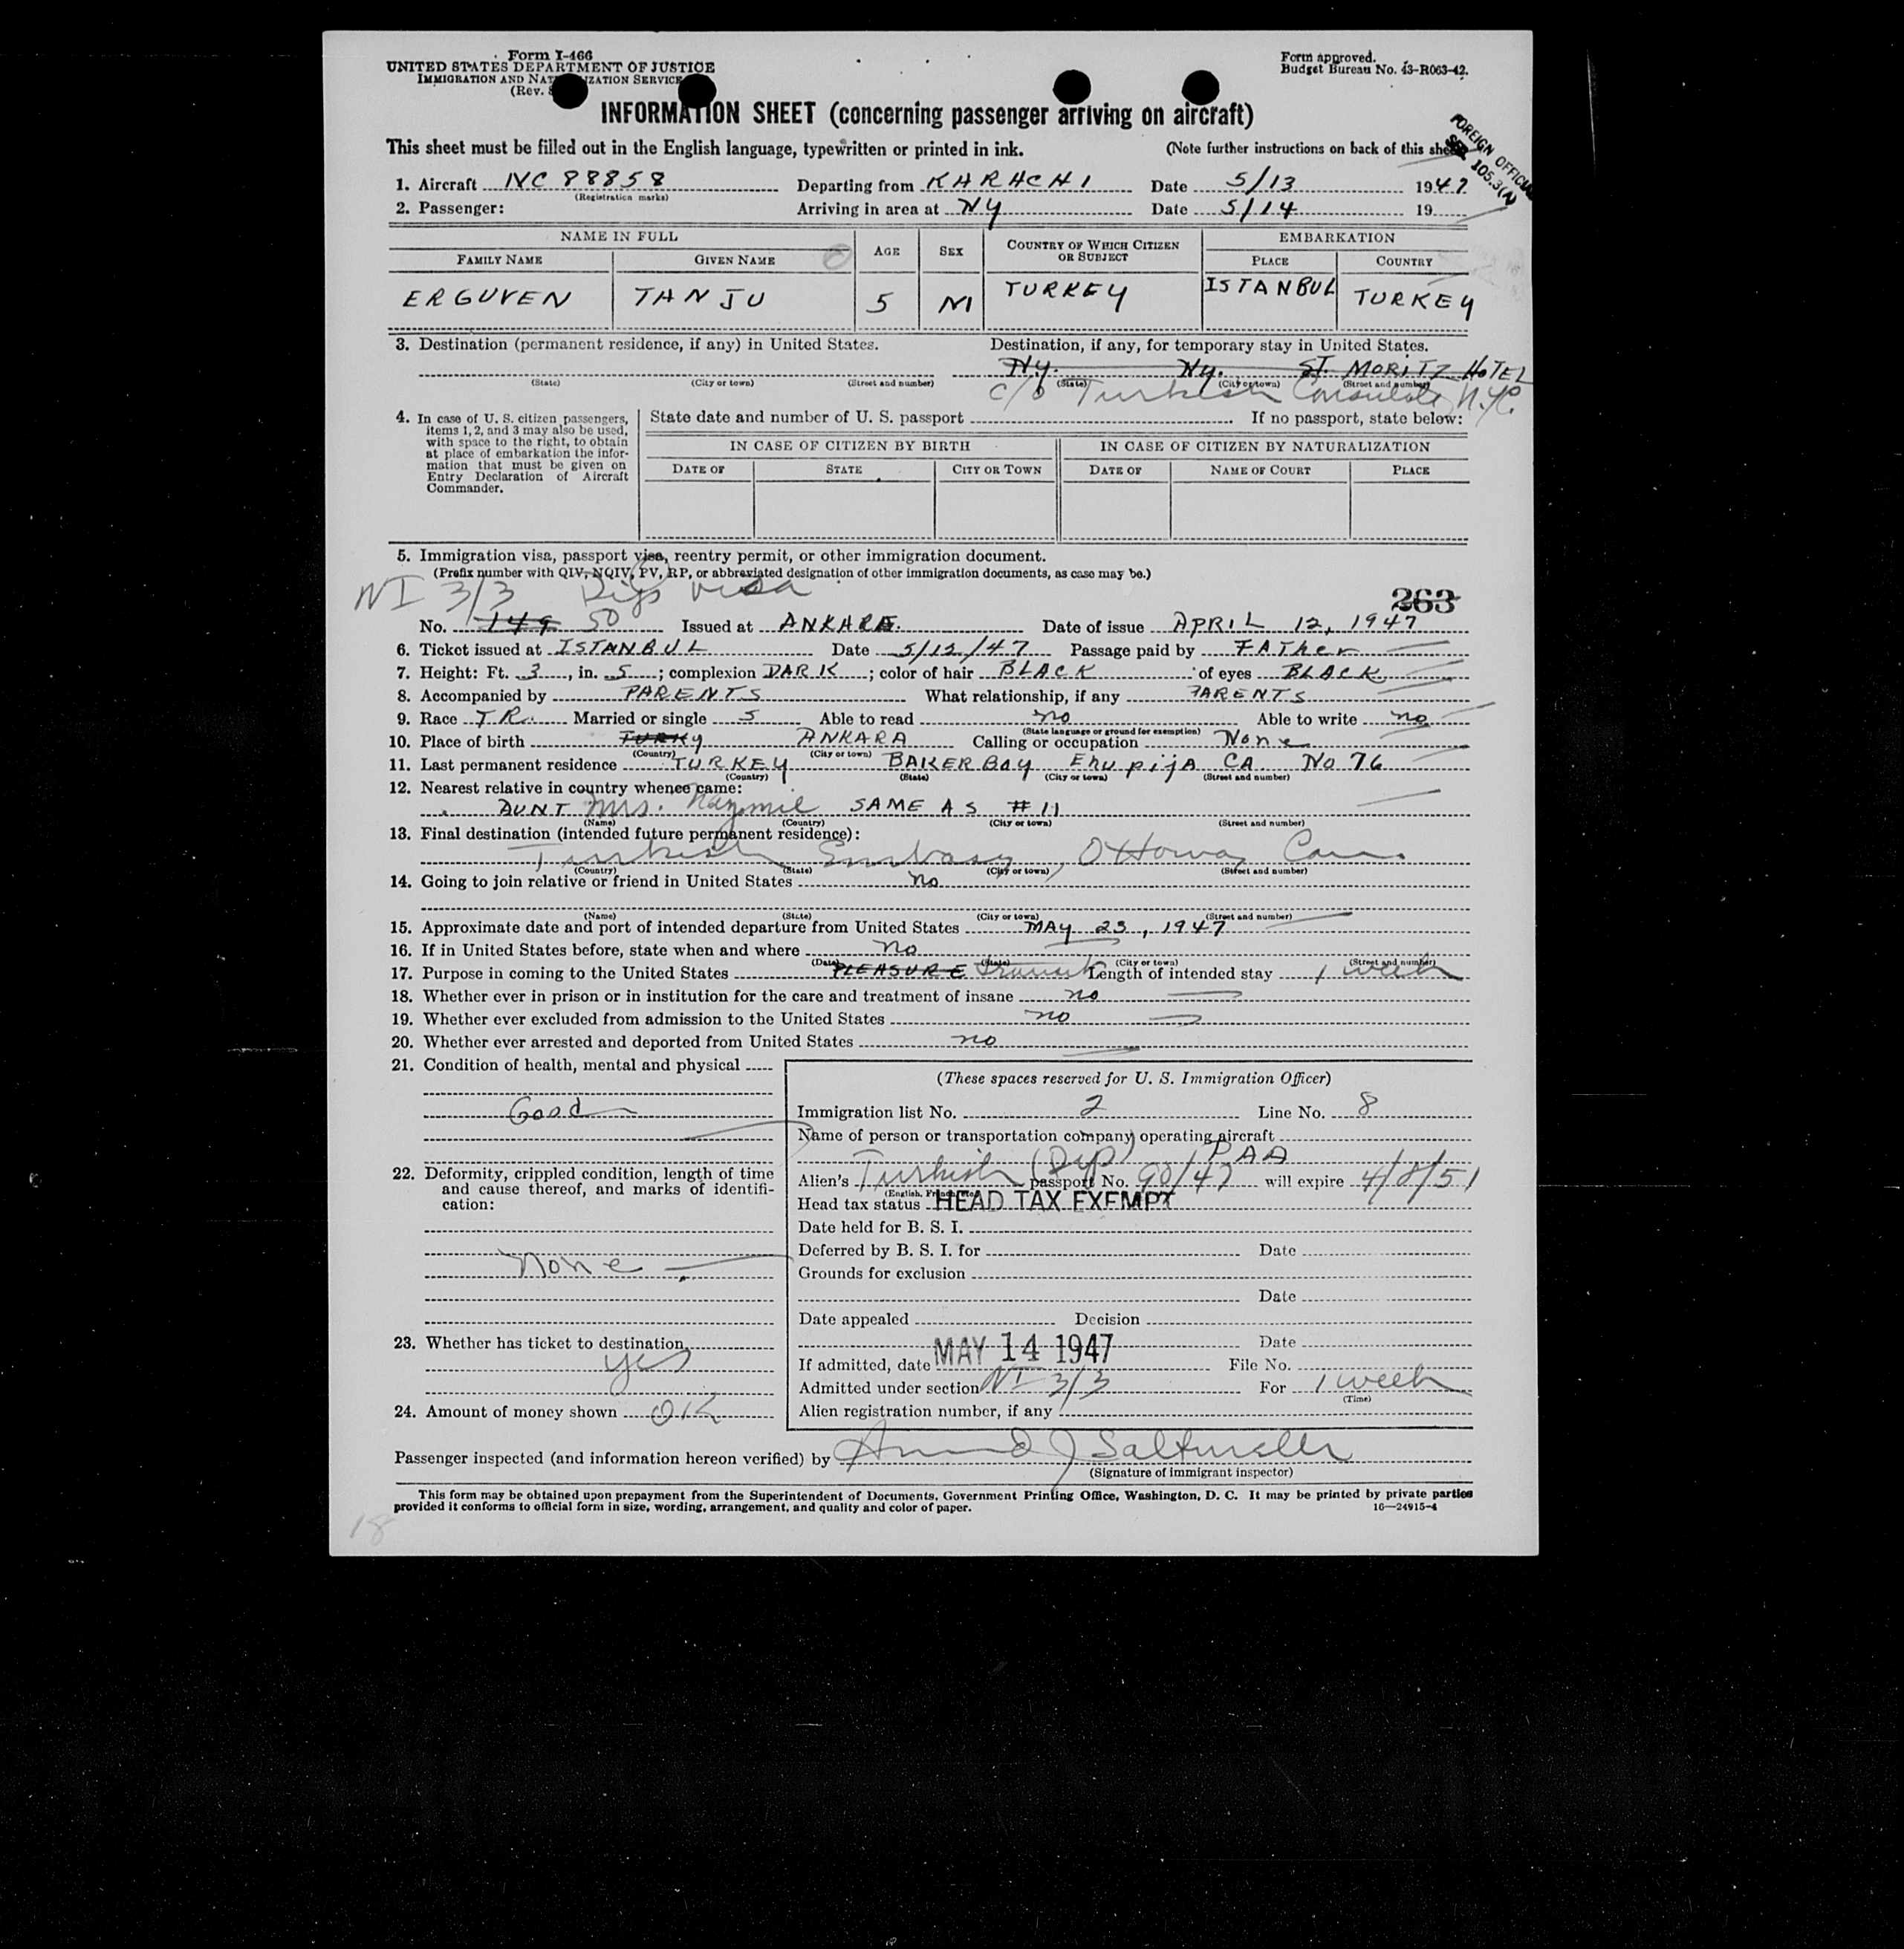 Form I-466
UNITED STATES DEPARTMENT OF JUSTICE
IMMIGRATION AND NATURALIZATION SERVICE
(Rev.
Form approved.
Budget Bureau No. 43-R063-42.
INFORMATION SHEET (concerning passenger arriving on aircraft)
This sheet must be filled out in the English language, typewritten or printed in ink. (Note further instructions on back of this sheet)
FOREIGN OFFICIAL
SEC. 105.3(A)
1. Aircraft NC 88858 Departing from KARACHI Date 5/13 1947
(Registration marks)
2. Passenger: Arriving in area at NY Date 5/14 19
NAME IN FULL AGE SEX COUNTRY OF WHICH CITIZEN OR SUBJECT EMBARKATION
FAMILY NAME GIVEN NAME PLACE COUNTRY
ERGUVEN TANJU 5 M TURKEY ISTANBUL TURKEY
3. Destination (permanent residence, if any) in United States. Destination, if any, for temporary stay in United States.
NY. NY. ST. MORITZ HOTEL
(State) (City or town) (Street and number) (State) (City or town) (Street and number)
c/o Turkish Consulate N.Y.C.
4. In case of U. S. citizen passengers, items 1, 2, and 3 may also be used, with space to the right, to obtain at place of embarkation the information that must be given on Entry Declaration of Aircraft Commander.
State date and number of U. S. passport If no passport, state below:
IN CASE OF CITIZEN BY BIRTH IN CASE OF CITIZEN BY NATURALIZATION
DATE OF STATE CITY OR TOWN DATE OF NAME OF COURT PLACE
5. Immigration visa, passport visa, reentry permit, or other immigration document.
(Prefix number with QIV, NQIV, PV, RP, or abbreviated designation of other immigration documents, as case may be.)
NI 3/3 Dip visa 263
No. 149 50 Issued at ANKARA. Date of issue APRIL 12, 1947
6. Ticket issued at ISTANBUL Date 5/12/47 Passage paid by FATHER
7. Height: Ft. 3, in. 5; complexion DARK; color of hair BLACK of eyes BLACK
8. Accompanied by PARENTS What relationship, if any PARENTS
9. Race TR. Married or single S Able to read no Able to write no
(State language or ground for exemption)
10. Place of birth TURKY ANKARA Calling or occupation None
(Country) (City or town)
11. Last permanent residence TURKEY BAKER BAY CA. No 76
(Country) (State) (City or town) (Street and number)
12. Nearest relative in country whence came:
AUNT Mrs. SAME AS #11
(Name) (Country) (City or town) (Street and number)
13. Final destination (intended future permanent residence):
Turkish Embasy, Ottowa, Can.
(Country) (State) (City or town) (Street and number)
14. Going to join relative or friend in United States no
(Name) (State) (City or town) (Street and number)
15. Approximate date and port of intended departure from United States MAY 23, 1947
16. If in United States before, state when and where no
(Date) (State) (City or town) (Street and number)
17. Purpose in coming to the United States PLEASURE transit Length of intended stay 1 week
18. Whether ever in prison or in institution for the care and treatment of insane no
19. Whether ever excluded from admission to the United States no
20. Whether ever arrested and deported from United States no
21. Condition of health, mental and physical
Good
22. Deformity, crippled condition, length of time and cause thereof, and marks of identification:
None
23. Whether has ticket to destination
yes
24. Amount of money shown OK
(These spaces reserved for U. S. Immigration Officer)
Immigration list No. 2 Line No. 8
Name of person or transportation company operating aircraft
PAA
Alien's Turkish (Dip) passport No. 90/47 will expire 4/8/51
(English, French, etc.)
Head tax status HEAD TAX EXEMPT
Date held for B. S. I.
Deferred by B. S. I. for Date
Grounds for exclusion
Date
Date appealed Decision
Date
If admitted, date MAY 14 1947 File No.
Admitted under section NI 3/3 For 1 week
(Time)
Alien registration number, if any
Passenger inspected (and information hereon verified) by
(Signature of immigrant inspector)
This form may be obtained upon prepayment from the Superintendent of Documents, Government Printing Office, Washington, D. C. It may be printed by private parties
provided it conforms to official form in size, wording, arrangement, and quality and color of paper. 16—24915-4
18